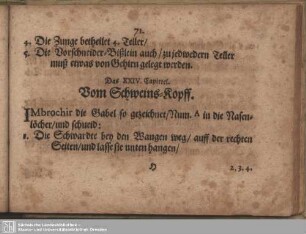 71.
4. Die Zunge betheilet 4. Teller/
5. Die Vorschneider-Bißlein auch/ zu jedwedern Teller
muß etwas von Gehten gelegt werden.
Das XXIV. Capittel.
Vom Schweins-Kopff.
IMbrochir die Gabel so gezeichnet/ Num. A in die Nasen-
löcher/ und schneid:
1. Die Schwardte bey den Wangen weg/ auff der rechten
Seiten/ und lasse sie unten hangen/
H
2. 3. 4.